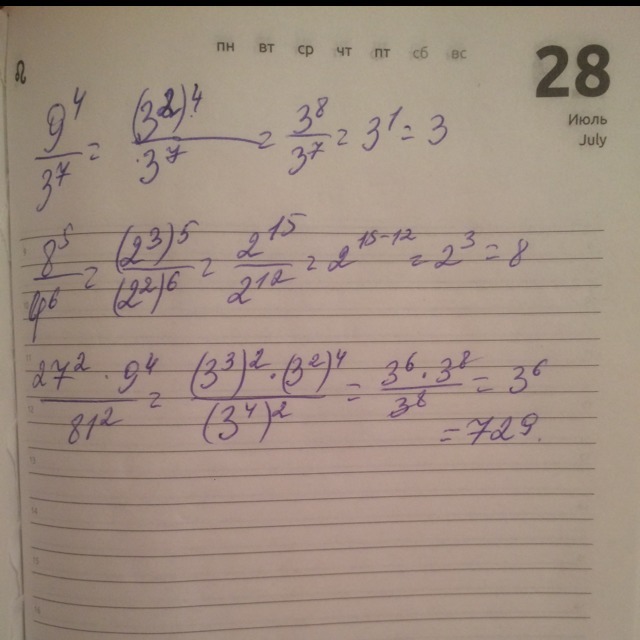 пн вт ср чт пт сб вс
28
Июль
July
9⁴/3⁷ = (3²)⁴/3⁷ = 3⁸/3⁷ = 3¹ = 3
8⁵/4⁶ = (2³)⁵/(2²)⁶ = 2¹⁵/2¹² = 2¹⁵⁻¹² = 2³ = 8
27² · 9⁴/81² = (3³)² · (3²)⁴/(3⁴)² = 3⁶ · 3⁸/3⁸ = 3⁶
= 729.